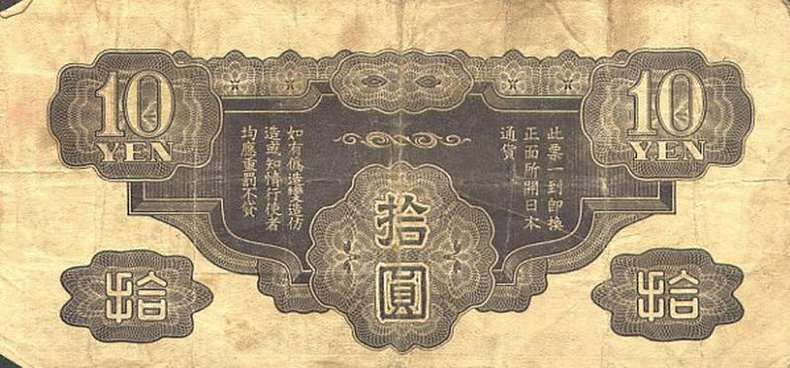 10
YEN
10
YEN
此票一到即換
正面所開日本
通貨
如有偽造變造仿
造或知情行使者
均應重罰不貸
拾
圓
拾
拾